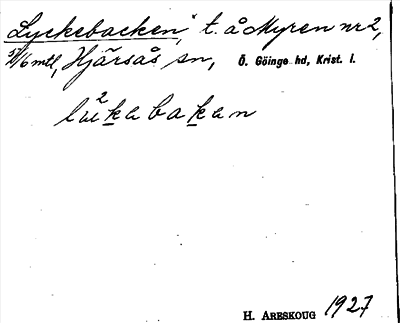 Lyckebacken, t. å Myren nr 2,
5/16 mtl, Hjärsås sn, Ö. Göinge hd, Krist. l.
H. Areskoug 1927